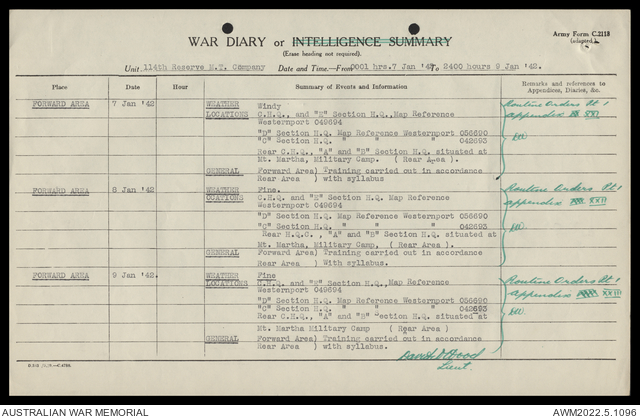 WAR DIARY or INTELLIGENCE SUMMARY
(Erase heading not required).
Army Form C.2118
(adapted.)
Unit 114th Reserve M.T. Company Date and Time.—From 0001 hrs.7 Jan '42 To 2400 hours 9 Jan '42.
Place Date Hour Summary of Events and Information Remarks and references to Appendices, Diaries, &c.
FORWARD AREA 7 Jan '42 WEATHER Windy Routine Orders Pt 1
LOCATIONS C.H.Q., and "E" Section H.Q., Map Reference appendix XXI
Westernport 049694
"D" Section H.Q. Map Reference Westernport 056690
"C" Section H.Q. " " " 042693
Rear C.H.Q., "A" and "B" Section H.Q. situated at
Mt. Martha, Military Camp. ( Rear Area ).
GENERAL Forward Area) Training carried out in accordance
Rear Area ) with syllabus
FORWARD AREA 8 Jan '42 WEATHER Fine. Routine Orders Pt 1
OCATIONS C.H.Q., and "E" Section H.Q., Map Reference appendix XXII
Westernport 049694
"D" Section H.Q. Map Reference Westernport 056690
"C" Section H.Q. " " " 042693
Rear H.Q.C., "A" and "B" Section H.Q. situated at
Mt. Martha, Military Camp, ( Rear Area ).
GENERAL Forward Area) Training carried out in accordance
Rear Area ) With syllabus.
FORWARD AREA 9 Jan '42. WEATHER Fine Routine Orders Pt 1
LOCATIONS C.H.Q., and "E" Section H.Q., Map Reference appendix XXIII
Westernport 049694
"D" Section H.Q. Map Reference Westernport 056690
"C" Section H.Q. " " " 042693
Rear C.H.Q., "A" and "B" Section H.Q. situated at
Mt. Martha Military Camp ( Rear Area )
GENERAL Forward Area) Training carried out in accordance
Rear Area ) with syllabus.
Lieut.
AUSTRALIAN WAR MEMORIAL AWM2022.5.1096